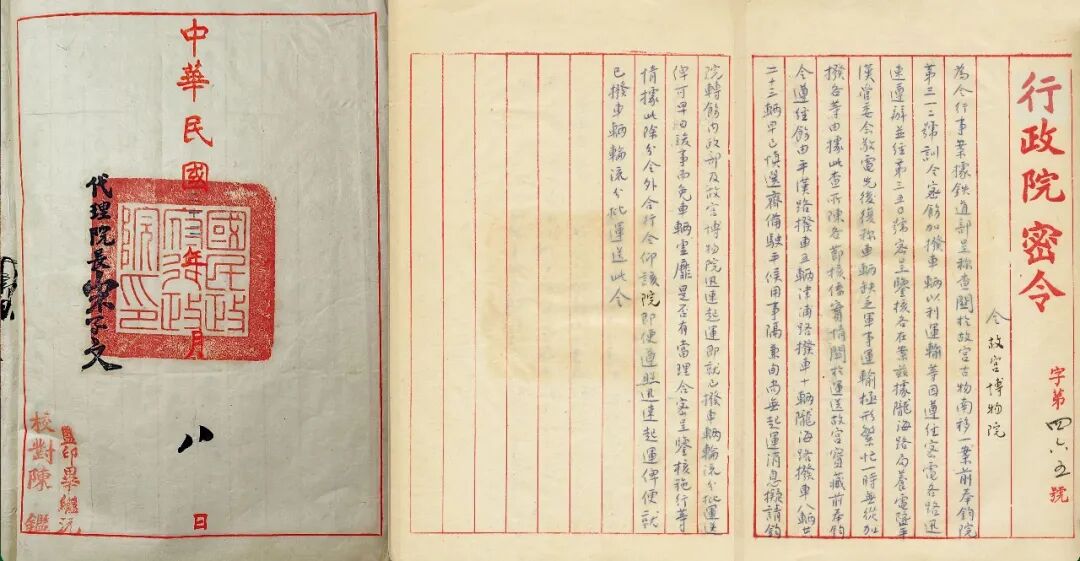 行政院密令
字第四六五號
令故宮博物院
為令行事案據鉄道部呈称查關於故宮古物南移一案前奉鈞院
第三一二號訓令密飭加撥車輛以利運輸等因遵往密電各路迅
速遵辦並往第三五〇號密呈鑒核各在案茲據隴海路局養電隆平
漢管委会敬電先後獲称車輛缺乏軍事運輸極形繁忙一時無從加
撥各等由據此查所陳各節核係實情關於運送故宮寶藏前奉鈞
令遵往飭由平漢路撥車五輛津浦路撥車十輛隴海路撥車八輛共
二十三輛早已慎選齊備駛平候用事隔兼旬尚無起運消息擬請鈞
院轉飭內政部及故宮博物院迅速起運即就已撥車輛輪流分批運送
俾可早日該事而免車輛虛靡是否有當理合密呈鑒核施行等
情據此除分令外合行令仰該院即便遵照迅速起運俾便就
已撥車輛輪流分批運送此令
中華民國年月
八
日
代理院長宋子文
國民政府行政院印
監印畢繼沉
校對陳鑑